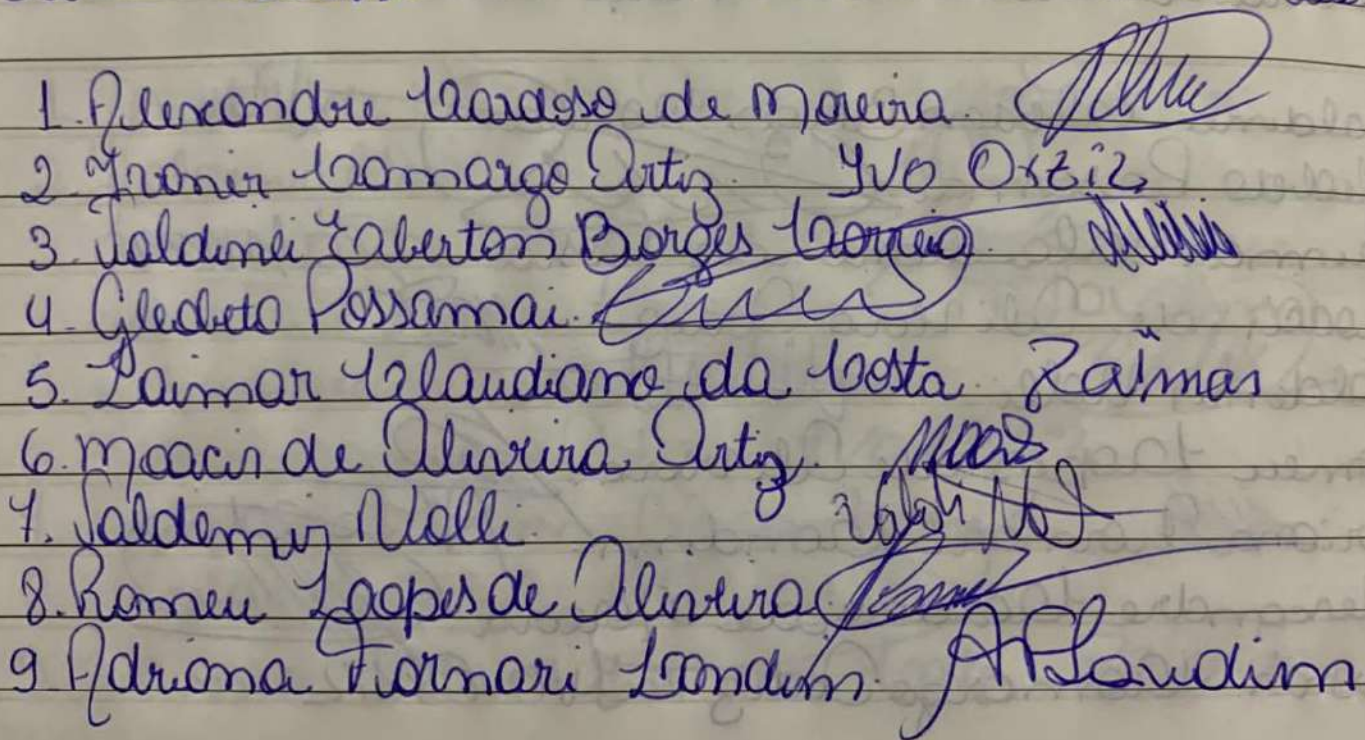 1. Alexandre Cardoso de Moreira.
2. Ivonir Camargo Ortiz. Ivo Ortiz
3. Valdinei Taberton Borges Correia.
4. Gledeto Possamai.
5. Zaimar Claudiano da Costa Zaimar
6. Moacir de Oliveira Ortiz. Moas
7. Valdemir Nolli.
8. Romeu Loopes de Oliveira
9 Adriana Fornari Landim. AFLandim